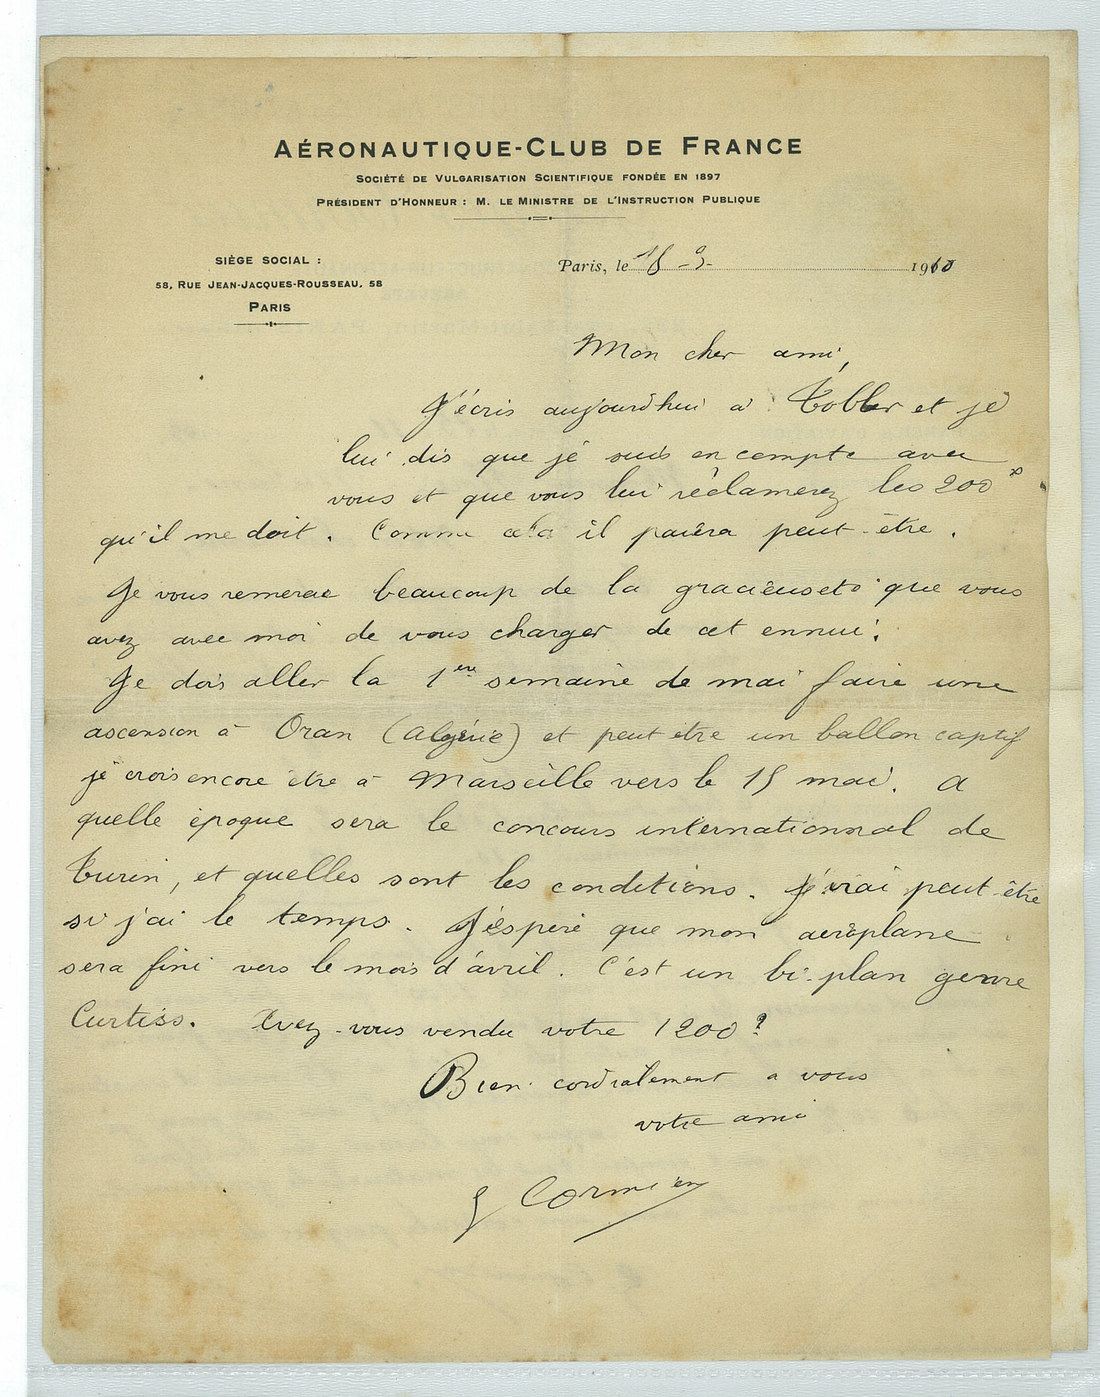 AÉRONAUTIQUE-CLUB DE FRANCE
SOCIÉTÉ DE VULGARISATION SCIENTIFIQUE FONDÉE EN 1897
PRÉSIDENT D'HONNEUR : M. LE MINISTRE DE L'INSTRUCTION PUBLIQUE
SIÈGE SOCIAL :
58, RUE JEAN-JACQUES-ROUSSEAU, 58
PARIS
Paris, le 1910
Mon cher ami,
J'écris aujourd'hui à Tobler et je
lui dis que je suis en compte avec
vous et que vous lui réclamerez les 200
qu'il me doit. Comme cela il paiera peut-être.
Je vous remercie beaucoup de la gracieuseté que vous
avez avec moi de vous charger de cet ennui.
Je dois aller la 1ere semaine de mai faire une
ascension à Oran (Algérie) et peut être un ballon captif
je crois encore être à Marseille vers le 15 mai. A
quelle époque sera le concours internationnal de
Turin, et quelles sont les conditions. J'irai peut-être
si j'ai le temps. J'éspère que mon aéroplane
sera fini vers le mois d'avril. C'est un bi-plan genre
Curtiss. Avez-vous vendu votre 1200 ?
Bien cordialement a vous
votre ami
Cormier